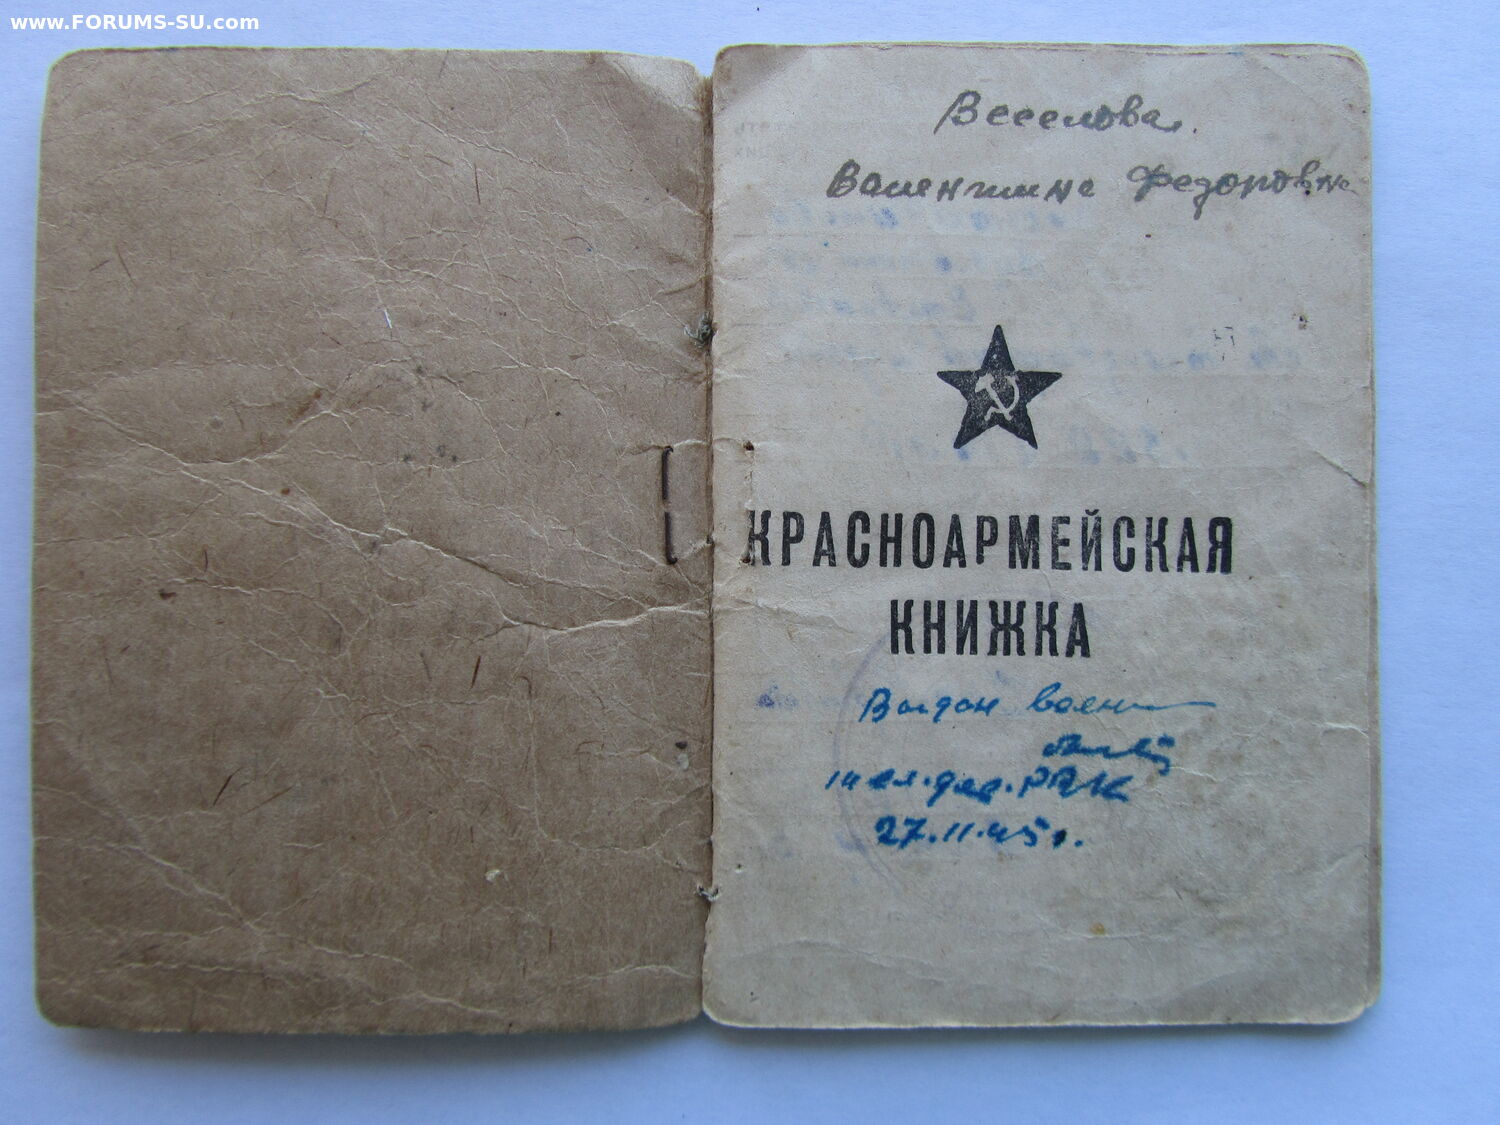 www.FORUMS-SU.com
Веселова
Валентина Федоровна
КРАСНОАРМЕЙСКАЯ
КНИЖКА
Выдан воен
РВК
27.11.45г.